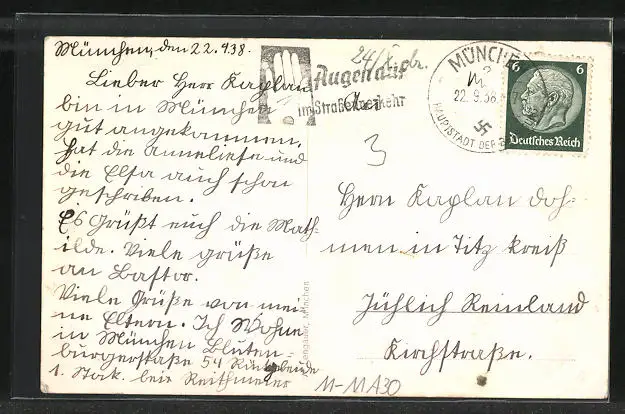 München, den 22.9.38.
Lieber Herr Kaplan
bin in München
gut angekommen.
hat die Anneliese und
die Elsa auch schon
geschrieben.
Es Grüßt euch die Math-
ilde. Viele grüße
an Bastor.
Viele Grüße von mei-
ne Eltern. Ich Wohne
in München Bluten-
burgerstaße 54
1. Stock. bei Reithmeier
Augen auf
im Straßenverkehr
MÜNCHEN
22.9.38
HAUPTSTADT DER
6 6
Deutsches Reich
3
Herrn Kaplan Doh-
men in Titz Kreiß
Jühlich Reinland
Kirchstraße.
München
M-MA30